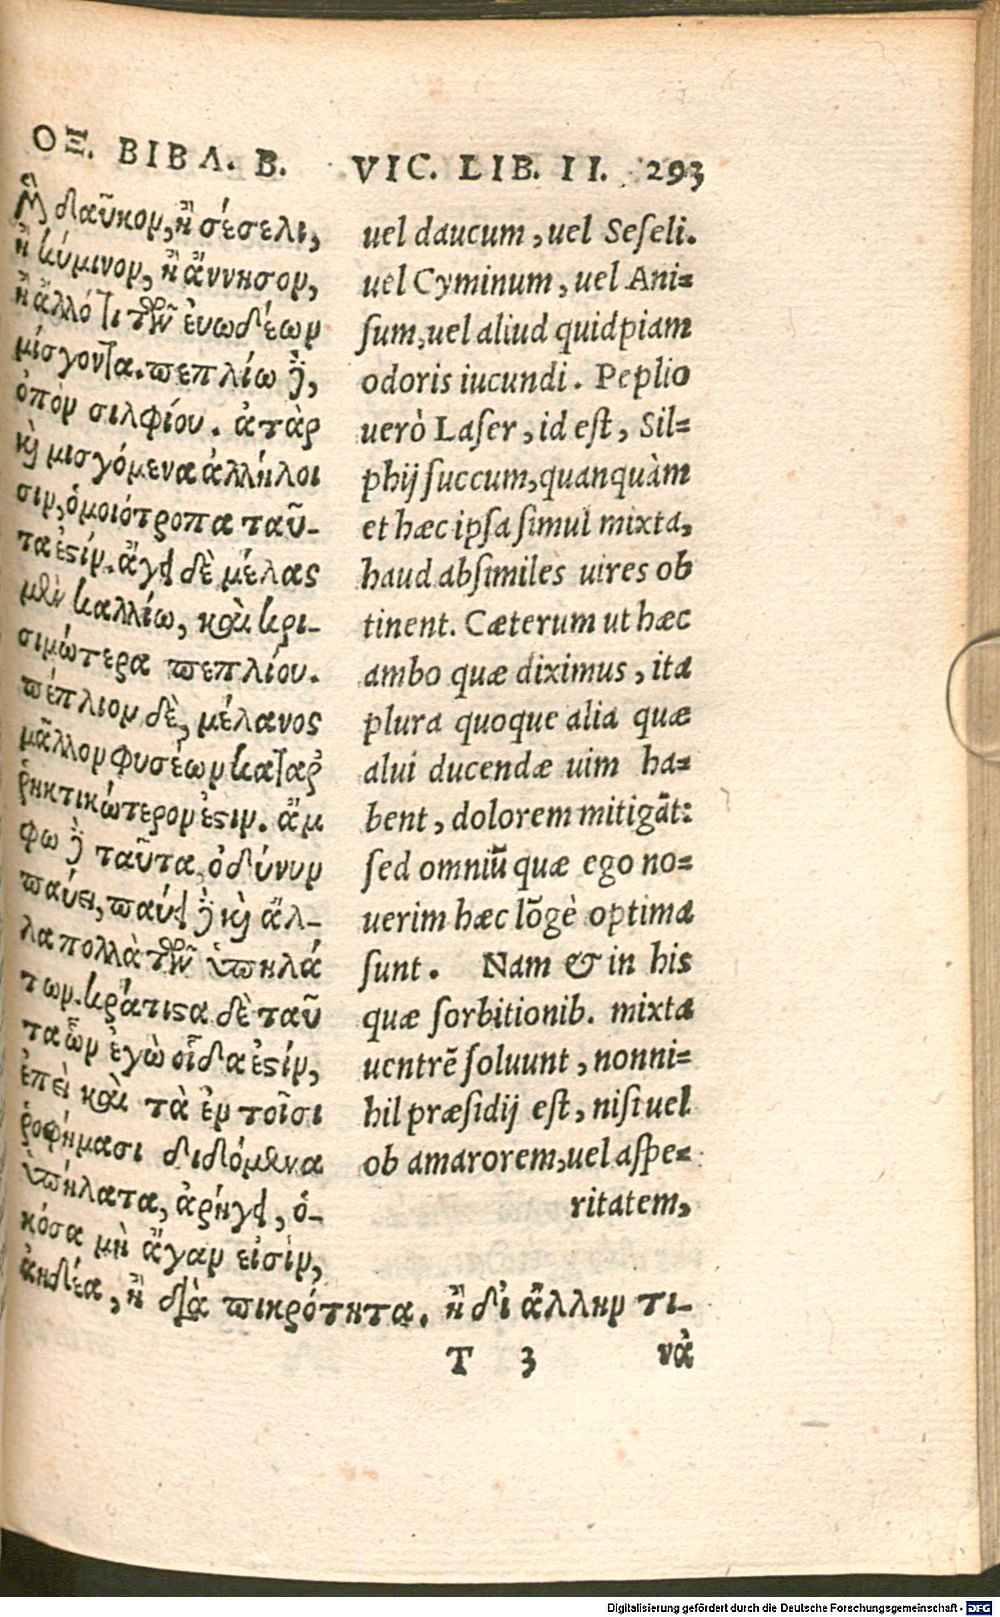 ΟΞ. ΒΙΒΛ. Β. VIC. LIB. II. 293
ἢ δαῦκον, ἢ σέσελι,
ἢ κύμινον, ἢ ἄννησον,
ἢ ἄλλό τι τῶν ἐυωδέων
μίσγοντα. πεπλίω δὲ,
ὀπὸν σιλφίου. ἀτὰρ
καὶ μισγόμενα ἀλλήλοι
σιν, ὁμοιότροπα ταῦ-
τα ἐστίν. ἄγει δὲ μέλας
μὲν καλλίω, καὶ κρι-
σιμώτερα πεπλίου.
πέπλιον δὲ, μέλανος
μᾶλλον φυσέων καταρ
ῥηκτικώτερον ἐστιν. ἄμ
φω δὲ ταῦτα, ὀδύνην
παύει, παύει δὲ καὶ ἄλ-
λα πολλὰ τῶν ὑπηλά
των. κράτιστα δὲ ταῦ
τα ὧν ἐγὼ οἶδα ἐστίν,
ἐπεὶ καὶ τὰ ἐν τοῖσι
ῥοφήμασι διδόμενα
ὑπήλατα, ἀρήγει, ὁ-
κόσα μὴ ἄγαν εἰσὶν,
ἀηδέα, ἢ διὰ πικρότητα. ἢ δι ἄλλην τι-
uel daucum, uel Seseli.
uel Cyminum, uel Ani=
sum, uel aliud quidpiam
odoris iucundi. Peplio
uerò Laser, id est, Sil=
phij succum, quanquàm
et hæc ipsa simul mixta,
haud absimiles uires ob
tinent. Cæterum ut hæc
ambo quæ diximus, ita
plura quoque alia quæ
alui ducendæ uim ha=
bent, dolorem mitigāt:
sed omniū quæ ego no=
uerim hæc lōgè optima
sunt. Nam & in his
quæ sorbitionib. mixta
uentrē soluunt, nonni=
hil præsidij est, nisi uel
ob amarorem, uel aspe=
ritatem,
T 3 νὰ
Digitalisierung gefördert durch die Deutsche Forschungsgemeinschaft - DFG